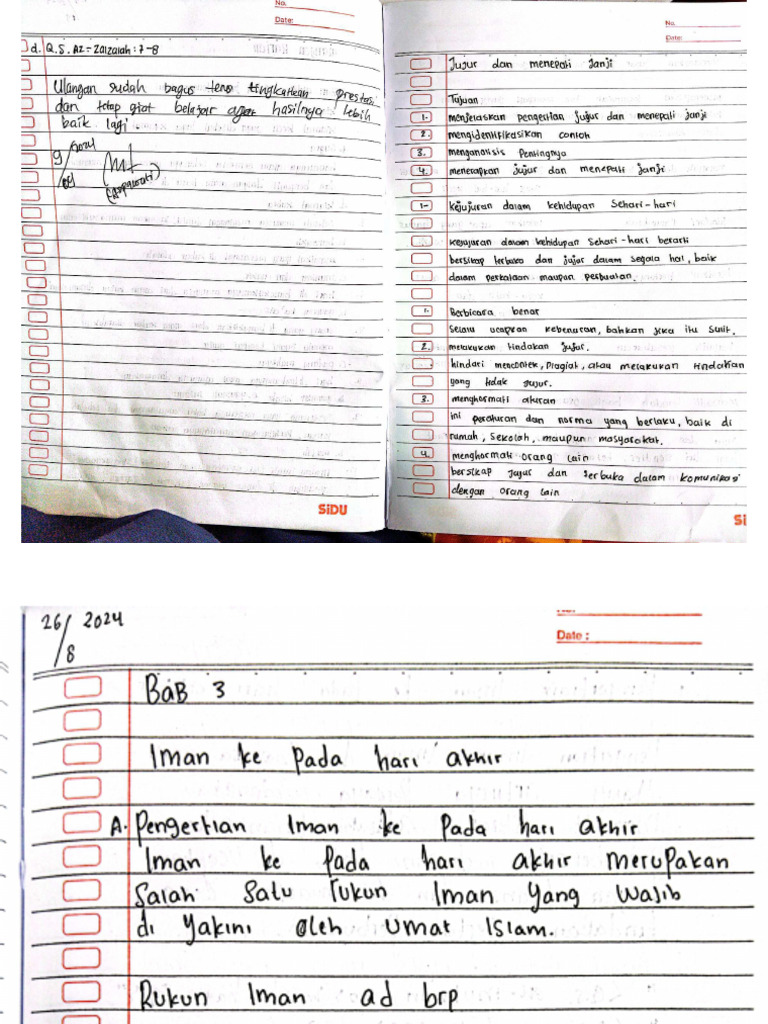 No.
Date:
d. Q.S. Az-Zalzalah : 7-8
Ulangan sudah bagus terus tingkatkan prestasi
dan tetap giat belajar agar hasilnya lebih
baik lagi
9/2024
SiDU
No.
Date:
Jujur dan menepati janji
Tujuan
1. menjelaskan pengertian jujur dan menepati janji
2. mengidentifikasikan contoh
3. menganalisis Pentingnya
4. menerapkan jujur dan menepati janji
1- kejujuran dalam kehidupan Sehari-hari
kejujuran dalam kehidupan Sehari-hari berarti
bersikap terbuka dan jujur dalam segala hal, baik
dalam perkataan maupun perbuatan.
1. Berbicara benar
Selalu ucapkan kebenaran, bahkan jika itu Sulit.
2. melakukan tindakan jujur.
hindari mencontek, Plagiat, atau melakukan tindakan
yang tidak jujur.
3. menghormati aturan
ini peraturan dan norma yang berlaku, baik di
rumah, Sekolah, maupun masyarakat.
4. menghormati orang lain
bersikap jujur dan terbuka dalam komunikasi
dengan orang lain
Si
26/8 2024
Date :
BaB 3
Iman ke Pada hari akhir
A. Pengertian Iman ke Pada hari akhir
Iman ke Pada hari akhir merupakan
Salah Satu rukun Iman yang wajib
di yakini oleh umat Islam.
Rukun Iman ad brp